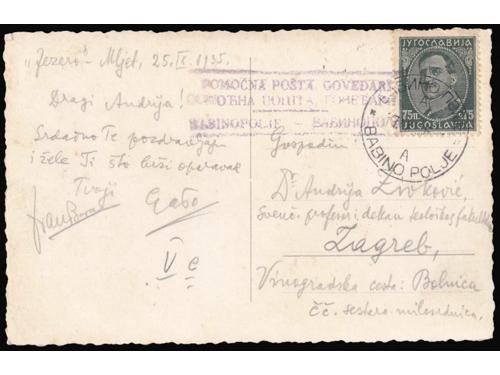 "Jezero" - Mljet, 25.IX.1935.
Dragi Andrija!
Srdačno Te pozdravljaju
i žele Ti što brži oporavak
Tvoji
Gabo
POMOĆNA POŠTA GOVEĐARI
BABINOPOLJE –
ЈУГОСЛАВИЈА
75П. 0.75
JUGOSLAVIJA
BABINO POLJE
A
Gospodin
Dr Andrija Živković,
Sveuč. profesor i dekan teološkog fakulteta
Zagreb,
Vinogradska cesta: Bolnica
čč. sestara milosrdnica.